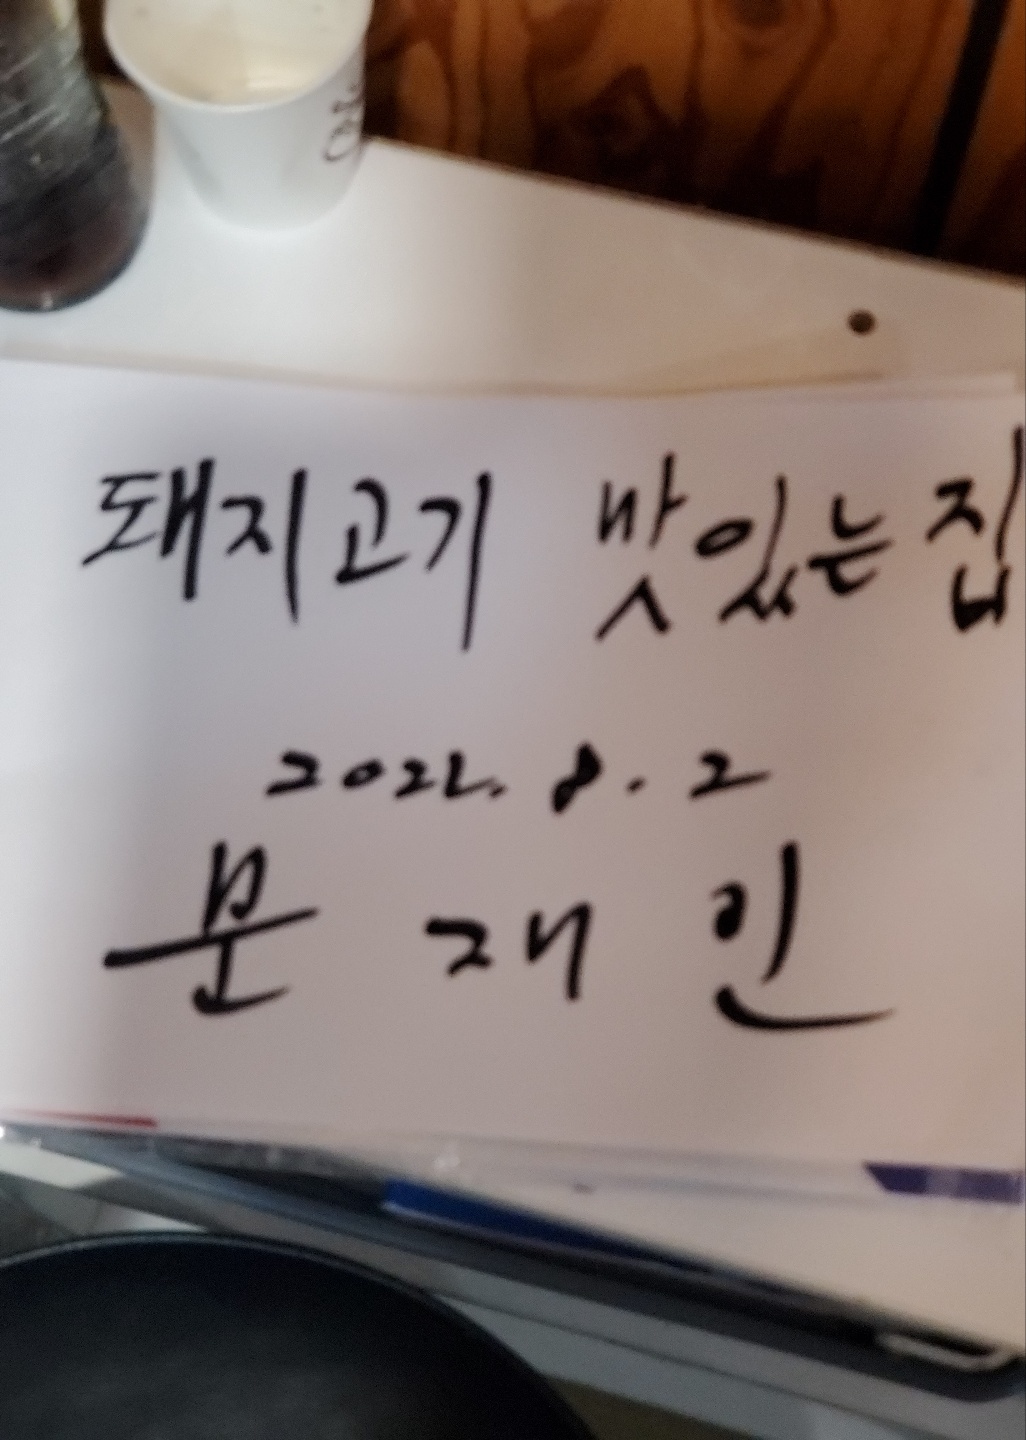 돼지고기 맛있는 집
2022. 8. 2
문 재 인